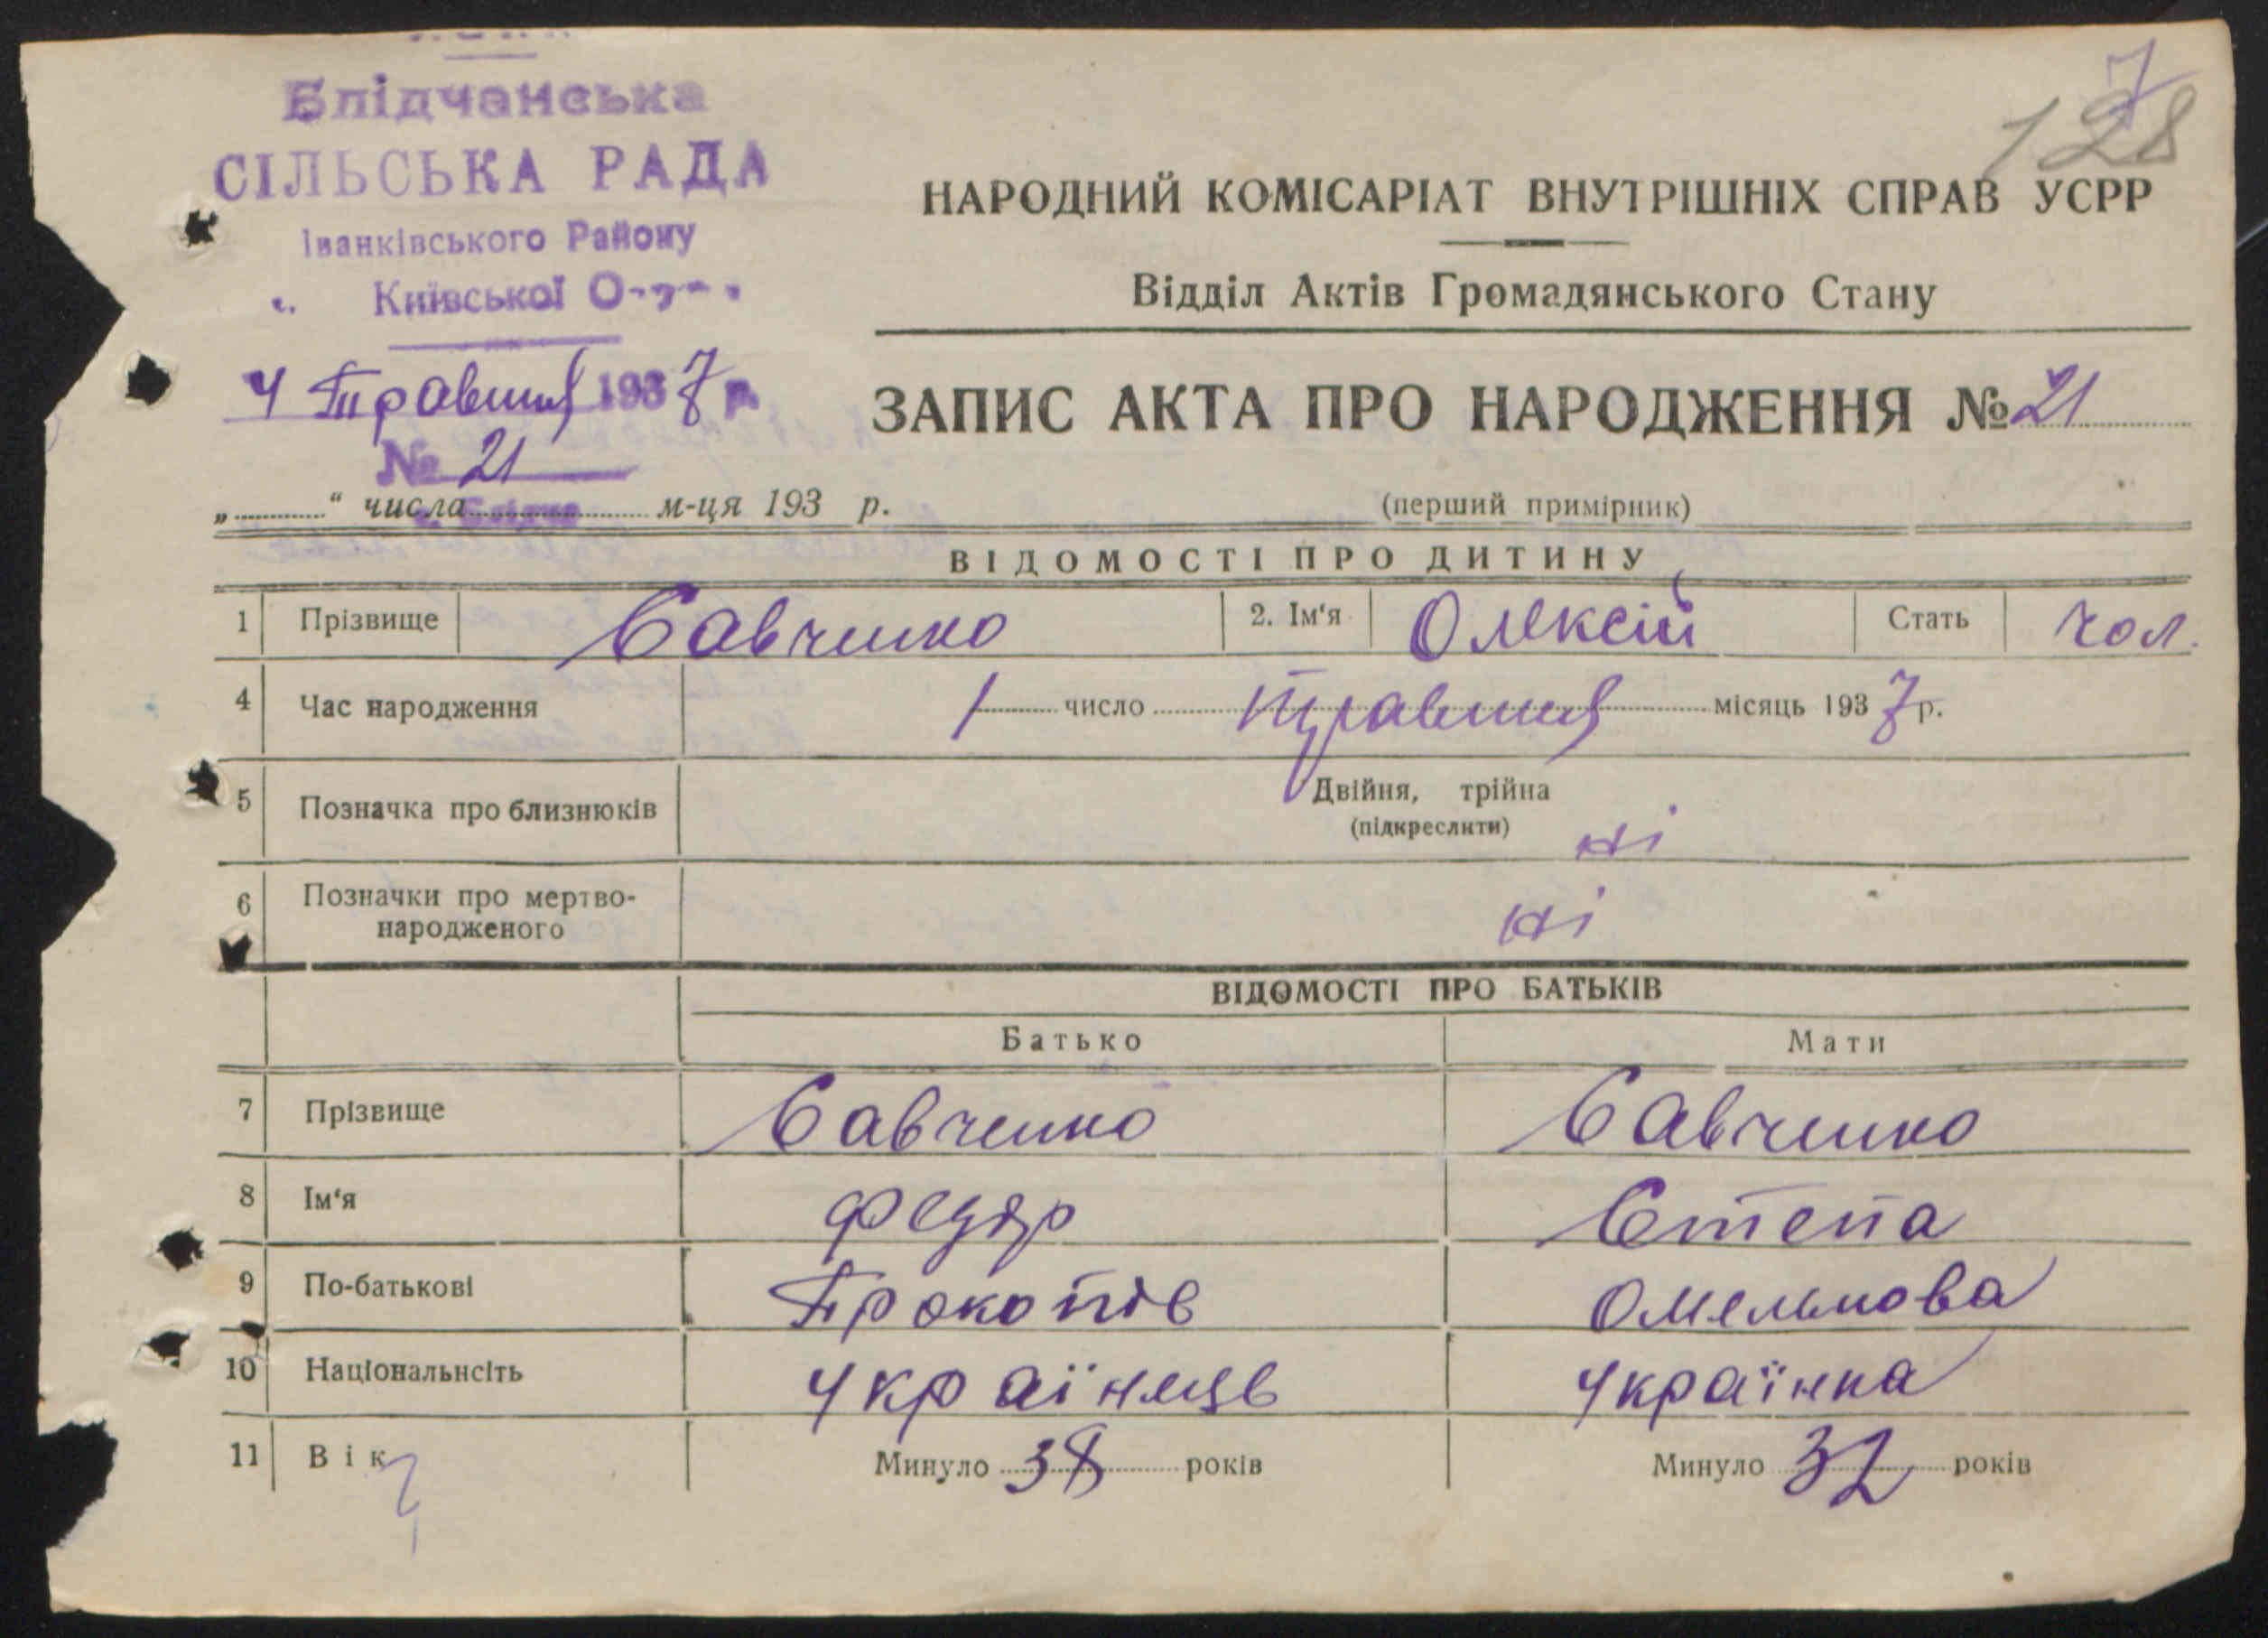 Блідчанська
СІЛЬСЬКА РАДА
Іванківського Району
Київської
4 Травня 1937 р.
№ 21
128
НАРОДНИЙ КОМІСАРІАТ ВНУТРІШНІХ СПРАВ УСРР
Відділ Актів Громадянського Стану
ЗАПИС АКТА ПРО НАРОДЖЕННЯ № 21
„ “ числа м-ця 193 р.
(перший примірник)
ВІДОМОСТІ ПРО ДИТИНУ
1 Прізвище Савченко 2. Ім‘я Олексій Стать чол.
4 Час народження 1 число травня місяць 1937 р.
5 Позначка про близнюків Двійня, трійна
(підкреслити) ні
6 Позначки про мертво-
народженого ні
ВІДОМОСТІ ПРО БАТЬКІВ
Батько Мати
7 Прізвище Савченко Савченко
8 Ім‘я Федор Степа
9 По-батькові Прокопів Омелькова
10 Національнсіть Українець Українка
11 Вік Минуло 38 років Минуло 32 років